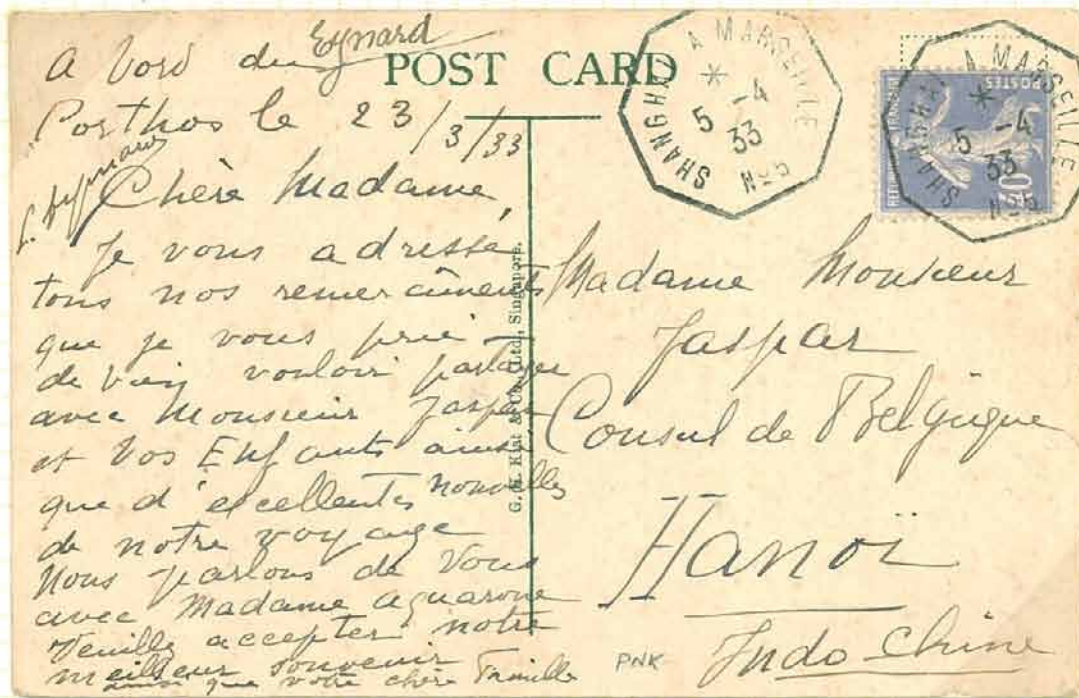 POST CARD
a bord du Eynard
Porthos le 23/3/33
Chère Madame,
Je vous adresse
tous nos remerciments
que je vous prie
de bien vouloir partager
avec Monsieur Jaspar
et vos Enfants ainsi
que d'excellentes nouvelles
de notre voyage
Nous parlons de vous
avec Madame Aquarone
Veuillez accepter notre
meilleur souvenir
ainsi que votre chère Famille
G. H. Kiat & Co., Ltd., Singapore.
SHANGHAI A MARSEILLE
*
5 -4
33
No5
SHANGHAI A MARSEILLE
*
5 -4
33
No5
POSTES
40
Madame Monsieur
Jaspar
Consul de Belgique
Hanoï
Indo Chine
PNK